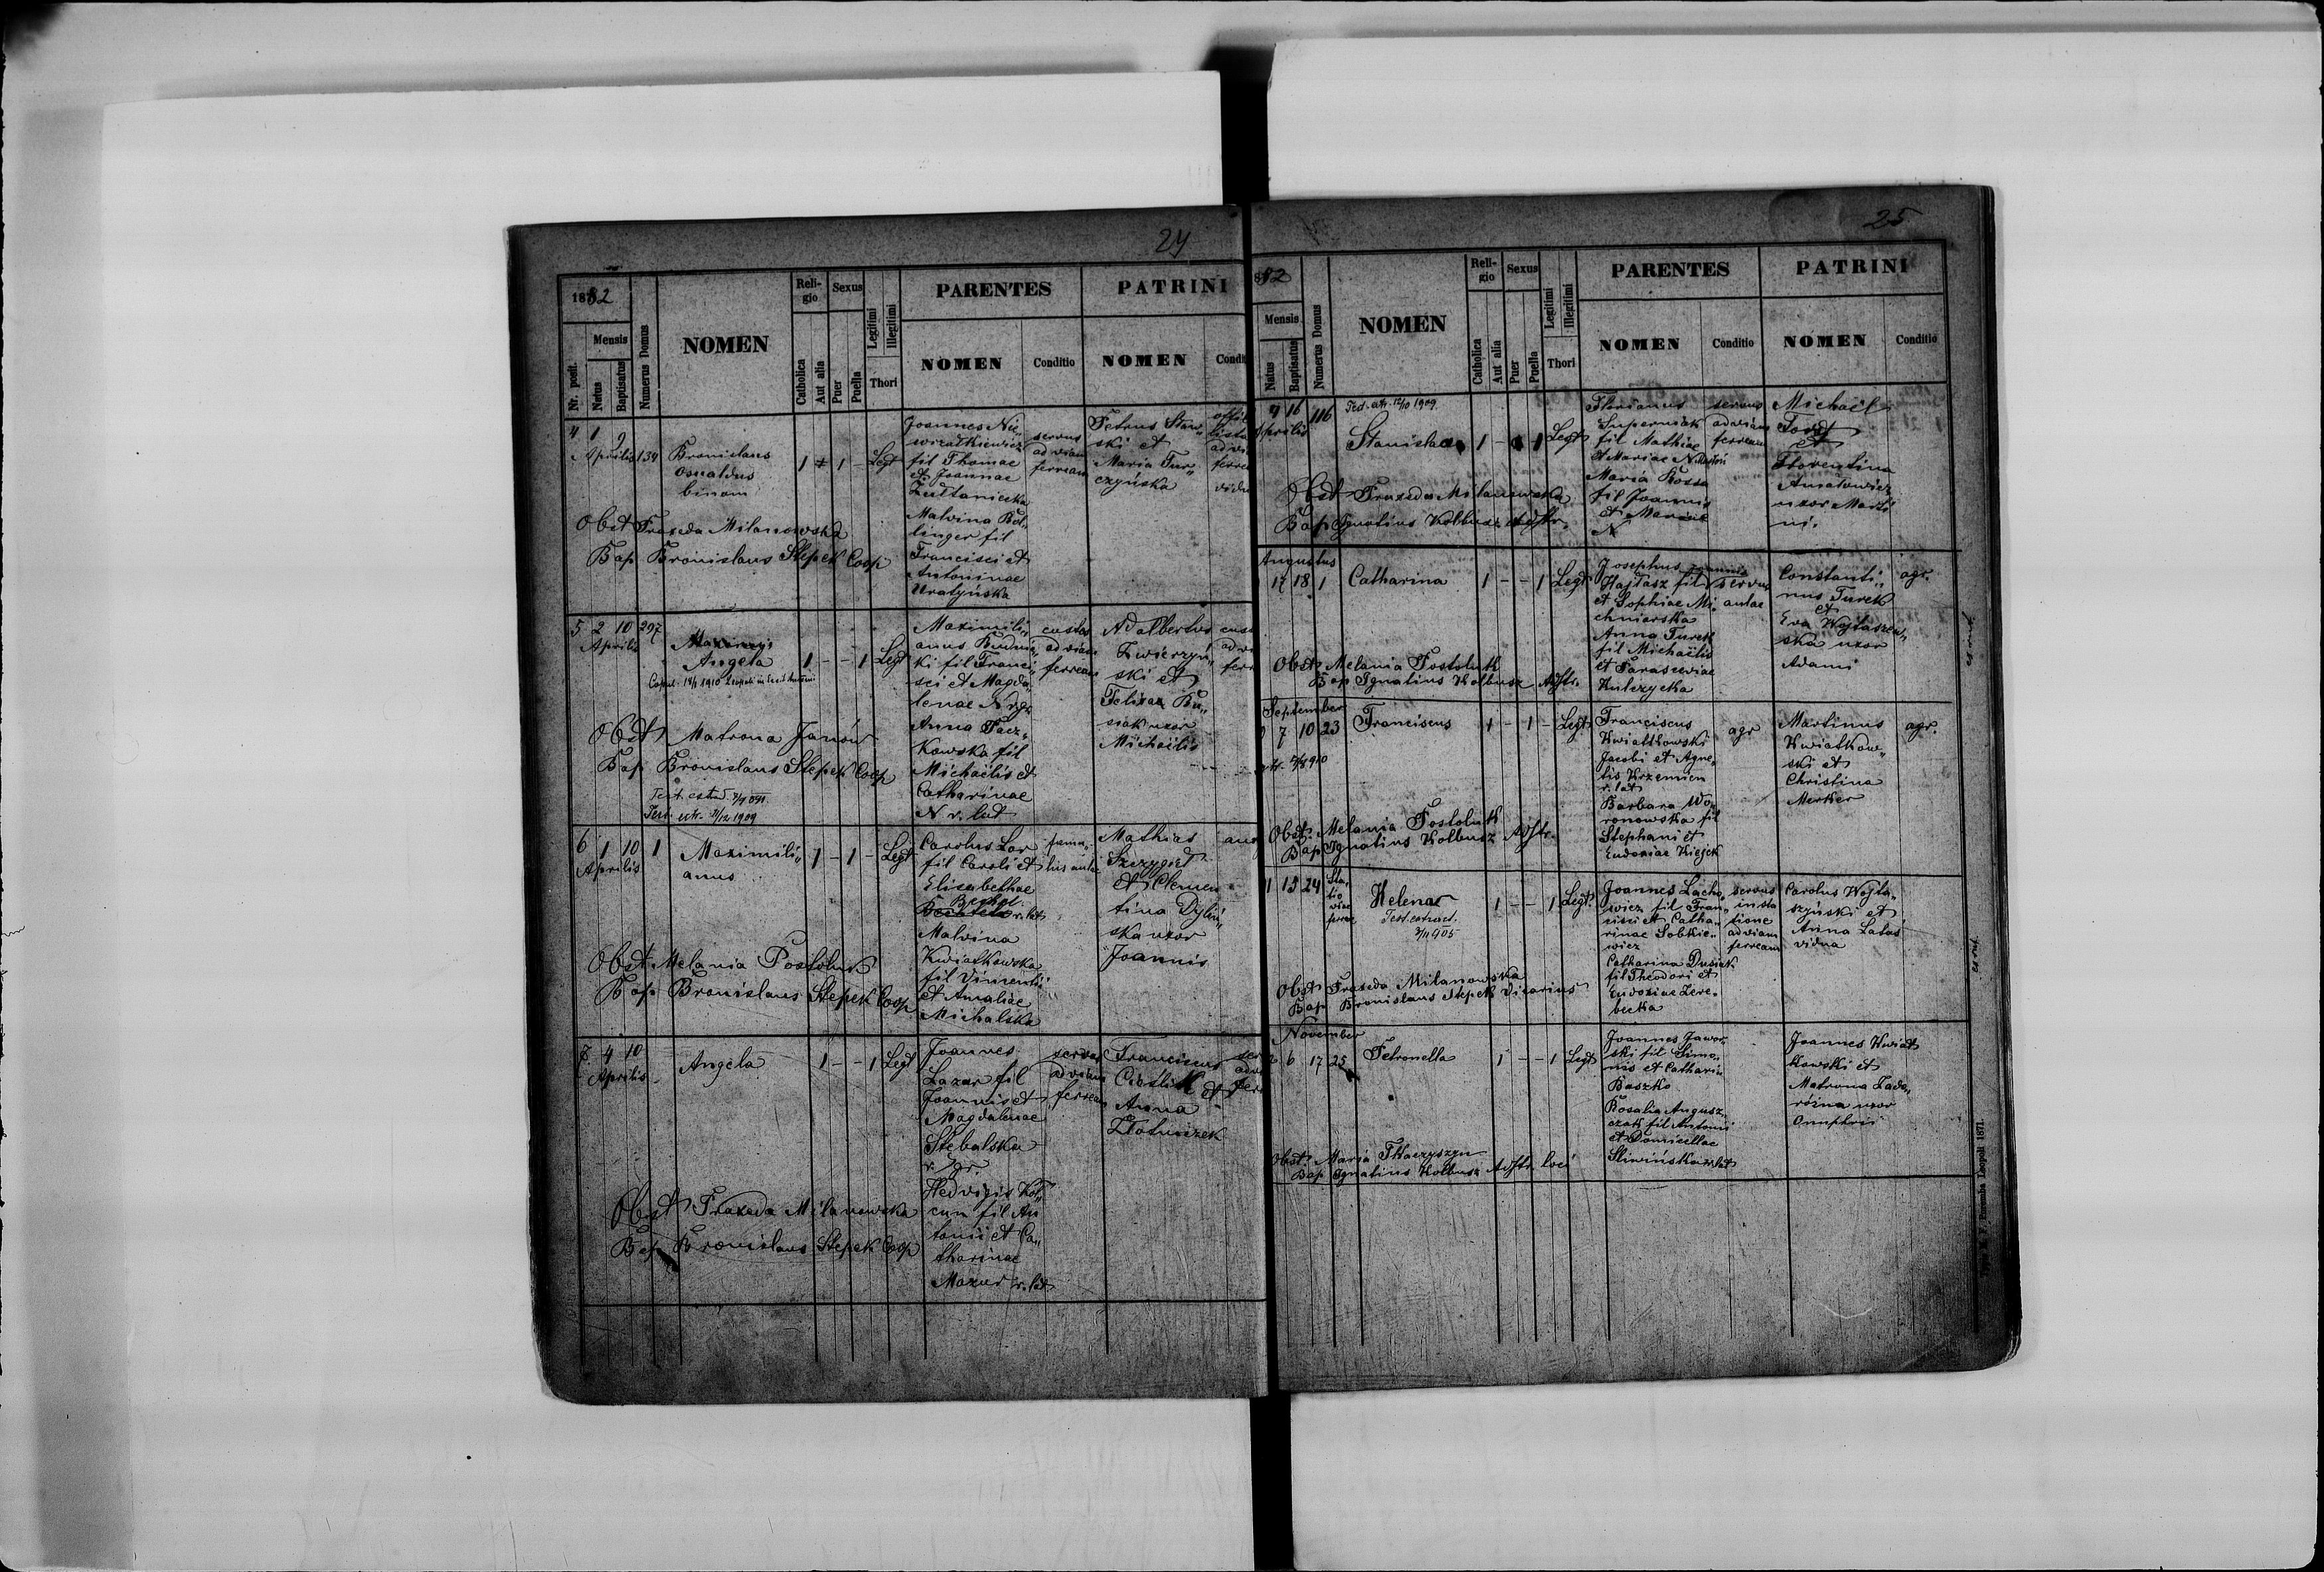 24
1882
Nr. posit.
Mensis
Natus
Baptisatus
Numerus Domus
NOMEN
Reli-
gio
Catholica
Aut alia
Sexus
Puer
Puella
Legitimi
Illegitimi
Thori
PARENTES
NOMEN
Conditio
PATRINI
NOMEN
Condit
4 1 9
Aprilis 134
Bronislaus
Osvaldus
binom
1 1 - Legt
Joannes Nie„
wizatkiewicz
fil Thomae
et Joannae
Malvina Bol„
linger fil
Francisci et
Antoninae
Uratyńska
servus
ad viam
ferream
Petrus Staw„
ski et
Maria Tur„
czyńska
Obst Praxeda Milanowska
Bap Bronislaus Stepek Coop
5 2 10 297
Aprilis
Angela
1 - - 1 Legt
Maximili„
anus
ki fil Franci„
sci et Magda„
lenae N r gr
Anna Pacz„
kowska fil
Michaëlis et
Catharinae
N r. lat
custos
ad viam
ferream
Adalbertus
Zwierzyń„
ski et
uxor
Michaëlis
Obst Matrona Janów
Bap Bronislaus Stepek Coop
6 1 10 1
Aprilis
Maximili„
anus
1 - 1 - Legt
Carolus Lor
fil Caroli et
Elisabethae
r. lat
Malvina
Kwiatkowska
fil Vincentii
et Amaliae
Michalska
famu„
lus aulae
Mathias
Szczygieł
et Clemen„
tina Dyliń„
ska uxor
Joannis
Obst Melania Postoluk
Bap Bronislaus Stepek Coop
7 4 10
Aprilis
Angela
1 - - 1 Legt
Joannes
Lazar fil
Joannis et
Magdalenae
Stebalska
r. gr.
Hedvigis Kol„
cun fil An
tonii et Ca„
tharinae
Mazur r. lat
servus
ad viam
ferream
Franciscus
Cieslik et
Anna
Zlotniczek
Obst Praxeda Milanowska
Bap Bronislaus Stepek Coop
25
882
Mensis
Natus
Baptisatus
Numerus Domus
NOMEN
Reli-
gio
Catholica
Aut alia
Sexus
Puer
Puella
Legitimi
Illegitimi
Thori
PARENTES
NOMEN
Conditio
PATRINI
NOMEN
Conditio
9 16 116
Aprilis
Stanislaa
1 - 1 Legt
Florianus
Superniak
fil Mathiae
et Mariae
Maria Kossa
fil Joannis
et Mariae
N
servus
ad viam
ferream
Michaël
et
Florentina
uxor Marti
ni.
Obst Praxeda Milanowska
Bap Ignatius Kolbusz Adstr.
Augustus
17 18 1 Catharina 1 - - 1 Legt
Josephus
Hajtasz fil Joannis
et Sophiae Mi„
chniarska
Anna Turek
fil Michaëlis
et Parascewiae
Kulczycka
servus
aulae
Constanti„
nus Turek
et
Eva Wojtaszew„
ska uxor
Adami
agr.
Obst Melania Postoluk
Bap Ignatius Kolbusz Adstr.
September
7 10 23 Franciscus 1 - 1 - Legt
Franciscus
Kwiatkowski
Jacobi et Agne„
tis Krzemien
r. lat
Barbara Wo„
ronowska fil
Stephani et
Eudoxiae Kiejek
agr
Martinus
Kwiatkow„
ski et
Christina
Merker
agr.
Obst. Melania Postoluk
Bap Ignatius Kolbusz Adstr.
13 24 Helena
1 - - 1 Legt.
Joannes Lacho„
wicz fil Fran„
cisci et Catha„
rinae Sobkie„
wicz
Catharina Dusiak
fil Theodori et
Eudoxiae Zere„
becka
servus
in sta
tione
ad viam
ferream
Carolus Wojta„
szyński et
Anna Latas
vidua
Obst Praxeda Milanowska
Bap Bronislaus Stepek Vicarius
November
6 17 25 Petronella 1 - - 1 Legt
Joannes Jawor„
ski fil Simo„
nis et Catharin
Baszko
Rosalia Augusz„
czak fil Antonii
et Domicellae
Sliwińska r. lat
Joannes Kwiat
kowski et
Matrona
uxor
Obst. Maria Tkaczyszyn
Bap Ignatius Kolbusz Adstr. loci
Leopoli 1871.